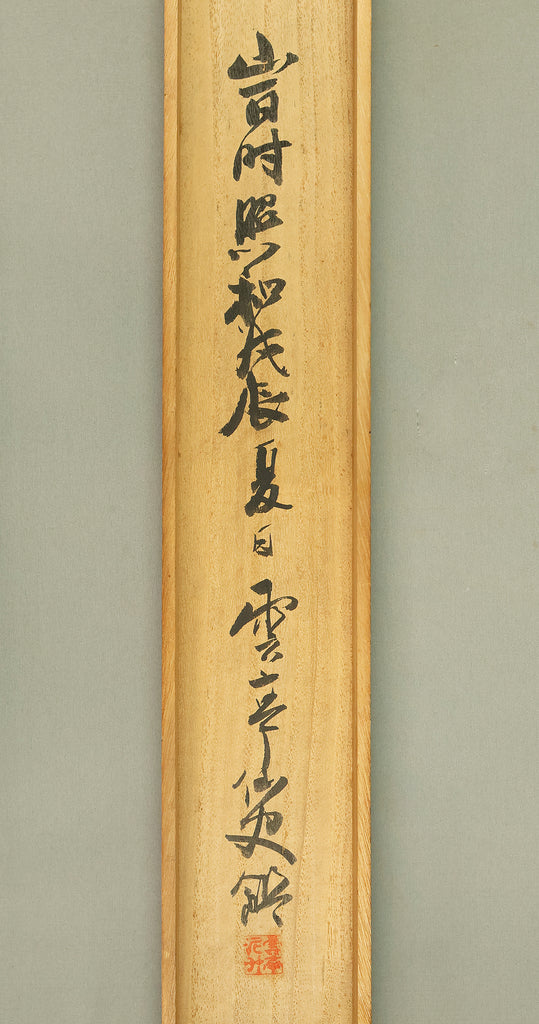 旹時昭和戊辰夏日雲亭仙史題